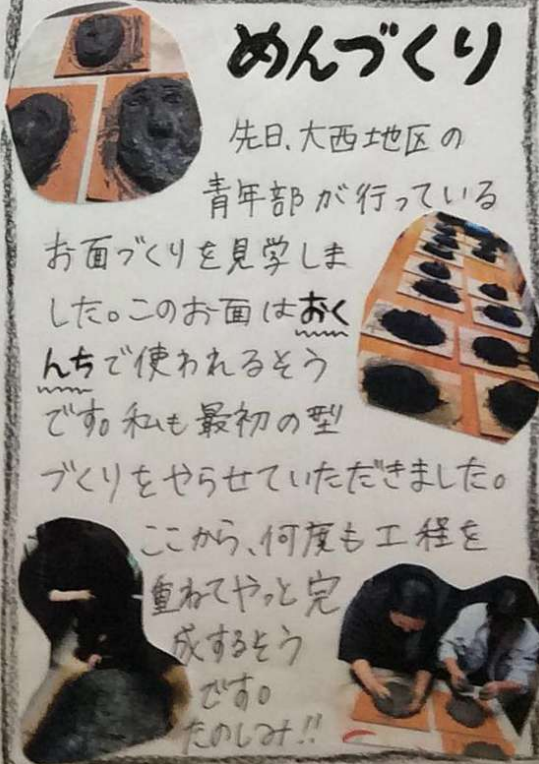 めんづくり
先日、大西地区の
青年部が行っている
お面づくりを見学しま
した。このお面はおく
んちで使われるそう
です。私も最初の型
づくりをやらせていただきました。
ここから、何度も工程を
重ねてやっと完
成するそう
です。
たのしみ!!